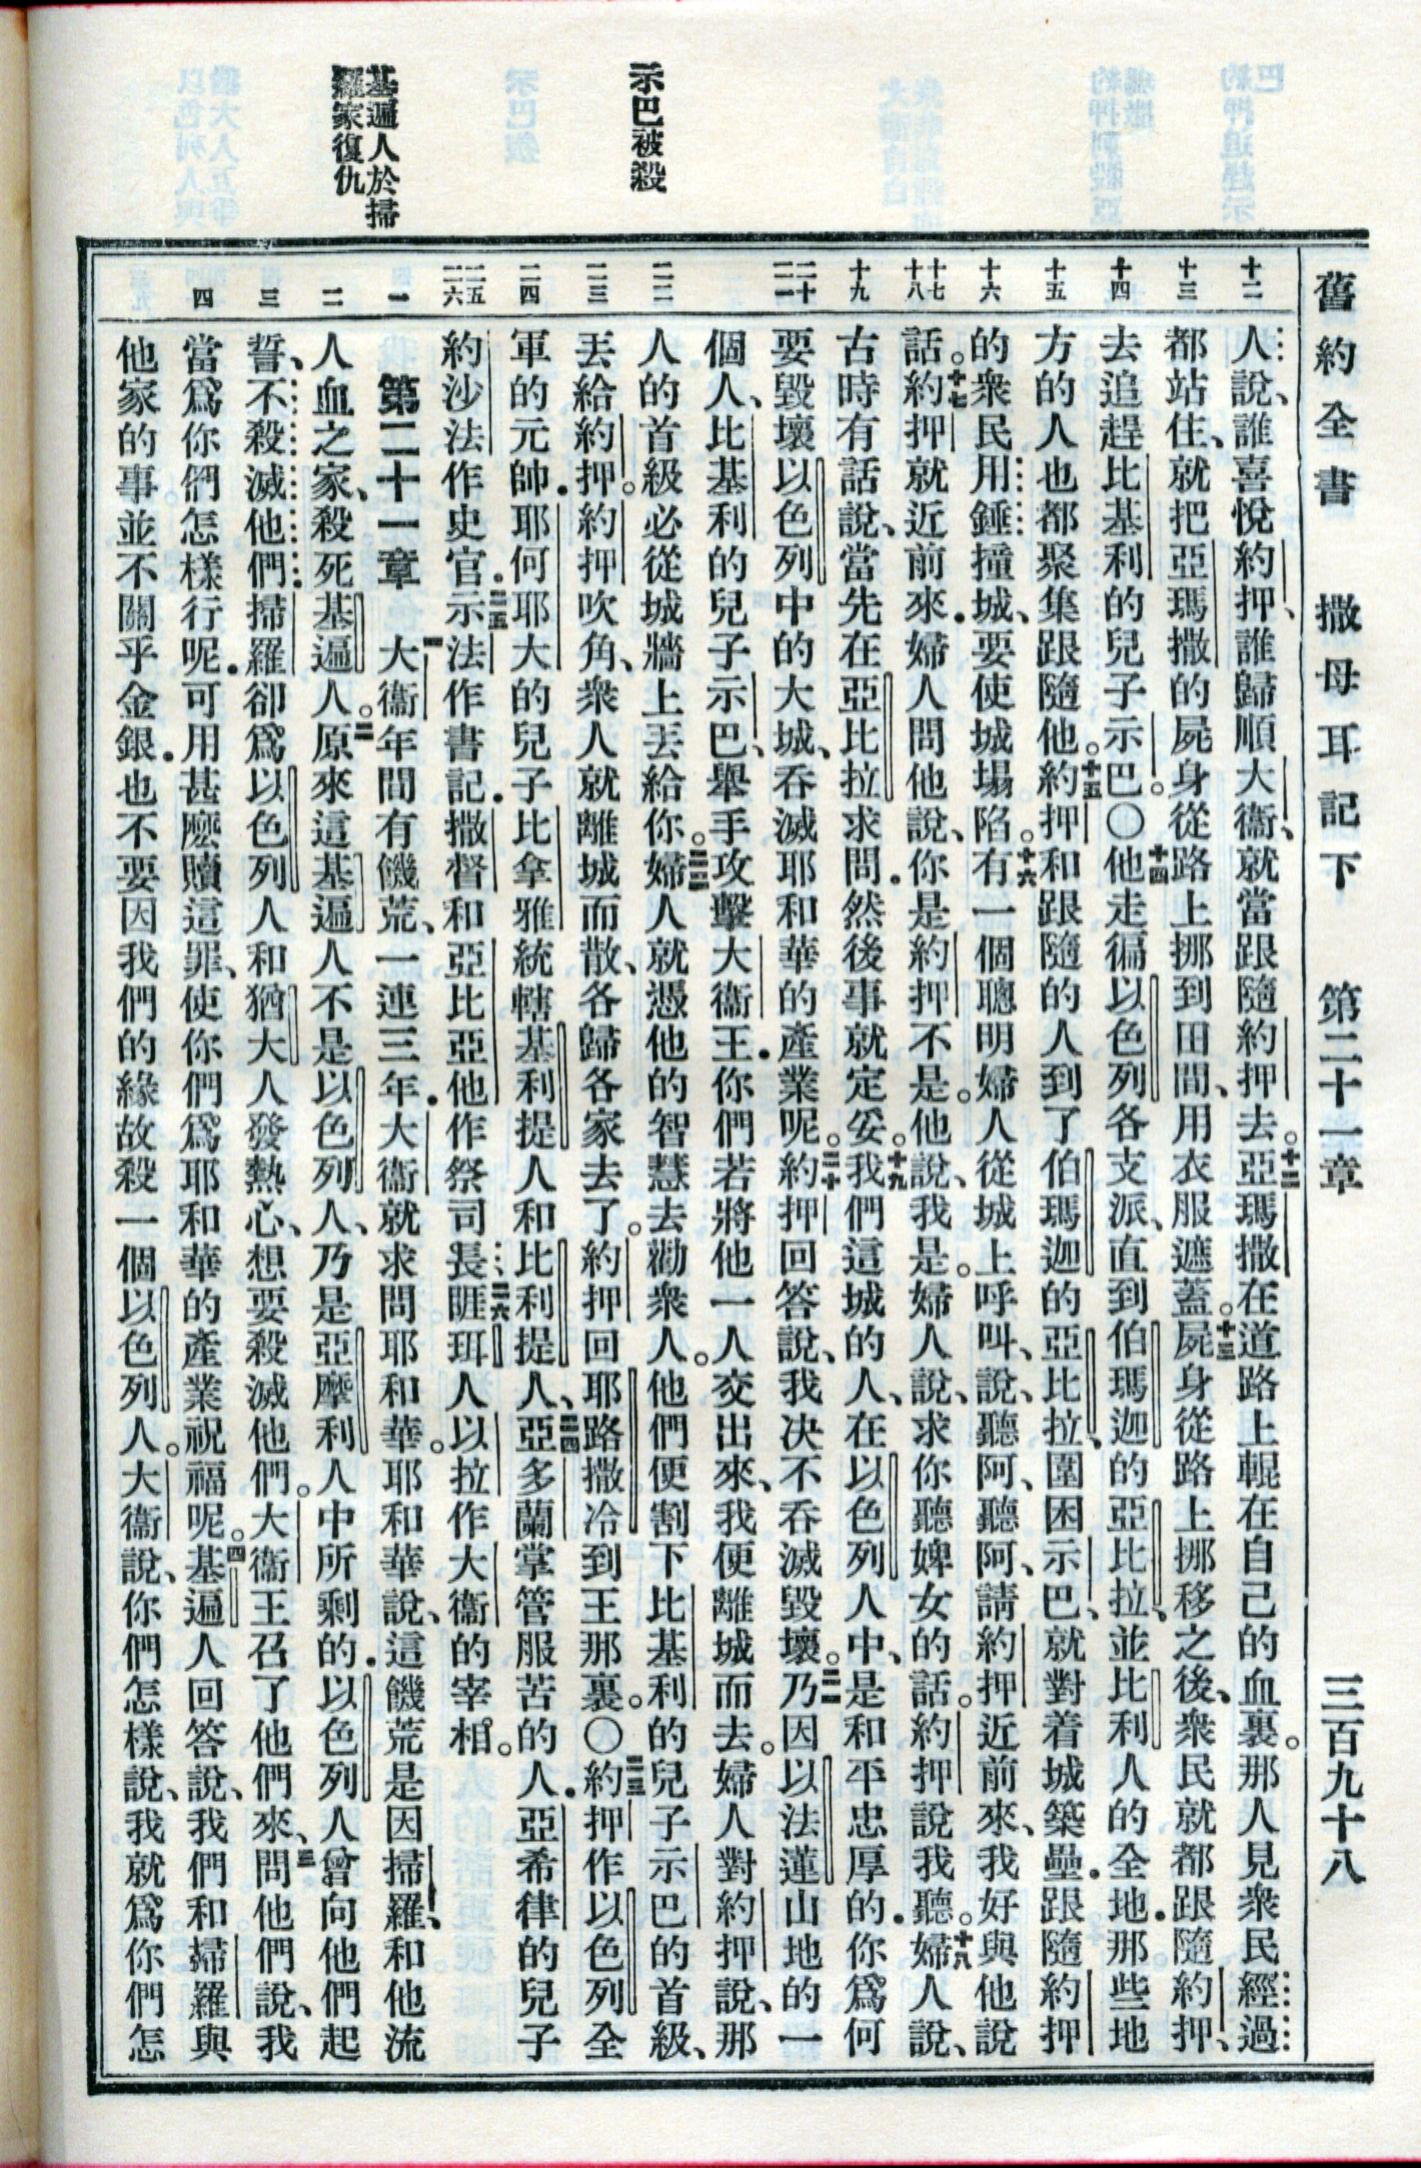 舊約全書 撒母耳記下 第二十一章 三百九十八
示巴被殺
基遍人於掃
羅家復仇
十二
十三
十四
十五
十六
十七
十八
十九
二十
二一
二二
二三
二四
二五
二六
一
二
三
四
人說、誰喜悅約押、誰歸順大衞、就當跟隨約押去。十二亞瑪撒在道路上輥在自己的血裏。那人見衆民經過
都站住、就把亞瑪撒的屍身從路上挪到田間、用衣服遮蓋。十三屍身從路上挪移之後、衆民就都跟隨約押、
去追趕比基利的兒子示巴。〇十四他走徧以色列各支派、直到伯瑪迦的亞比拉、並比利人的全地．那些地
方的人也都聚集跟隨他。十五約押和跟隨的人到了伯瑪迦的亞比拉、圍困示巴、就對着城築壘．跟隨約押
的衆民用錘撞城、要使城塲陷。十六有一個聰明婦人從城上呼叫、說、聽阿、聽阿、請約押近前來、我好與他說
話。十七約押就近前來．婦人問他說、你是約押不是。他說、我是。婦人說、求你聽婢女的話。約押說我聽。十八婦人說、
古時有話說、當先在亞比拉求問．然後事就定妥。十九我們這城的人、在以色列人中、是和平忠厚的．你爲何
要毀壞以色列中的大城、吞滅耶和華的產業呢。二十約押回答說、我决不吞滅毀壞。二一乃因以法蓮山地的一
個人、比基利的兒子示巴、舉手攻擊大衞王．你們若將他一人交出來、我便離城而去。婦人對約押說、那
人的首級必從城牆上丟給你。二二婦人就憑他的智慧去勸衆人。他們便割下比基利的兒子示巴的首級、
丟給約押。約押吹角、衆人就離城而散、各歸各家去了。約押回耶路撒冷到王那裏。〇二三約押作以色列全
軍的元帥．耶何耶大的兒子比拿雅統轄基利提人和比利提人、二四亞多蘭掌管服苦的人．亞希律的兒子
約沙法作史官．二五示法作書記．撒督和亞比亞他作祭司長．二六睚珥人以拉作大衞的宰相。
第二十一章 一大衞年間有饑荒、一連三年．大衞就求問耶和華。耶和華說、這饑荒是因掃羅、和他流
人血之家、殺死基遍人。二原來這基遍人不是以色列人、乃是亞摩利人中所剩的．以色列人曾向他們起
誓、不殺滅他們．掃羅卻爲以色列人和猶大人發熱心、想要殺滅他們。大衞王召了他們來、三問他們說、我
當爲你們怎樣行呢．可用甚麼贖這罪、使你們爲耶和華的產業祝福呢。四基遍人回答說、我們和掃羅與
他家的事並不關乎金銀．也不要因我們的緣故殺一個以色列人。大衞說、你們怎樣說、我就爲你們怎